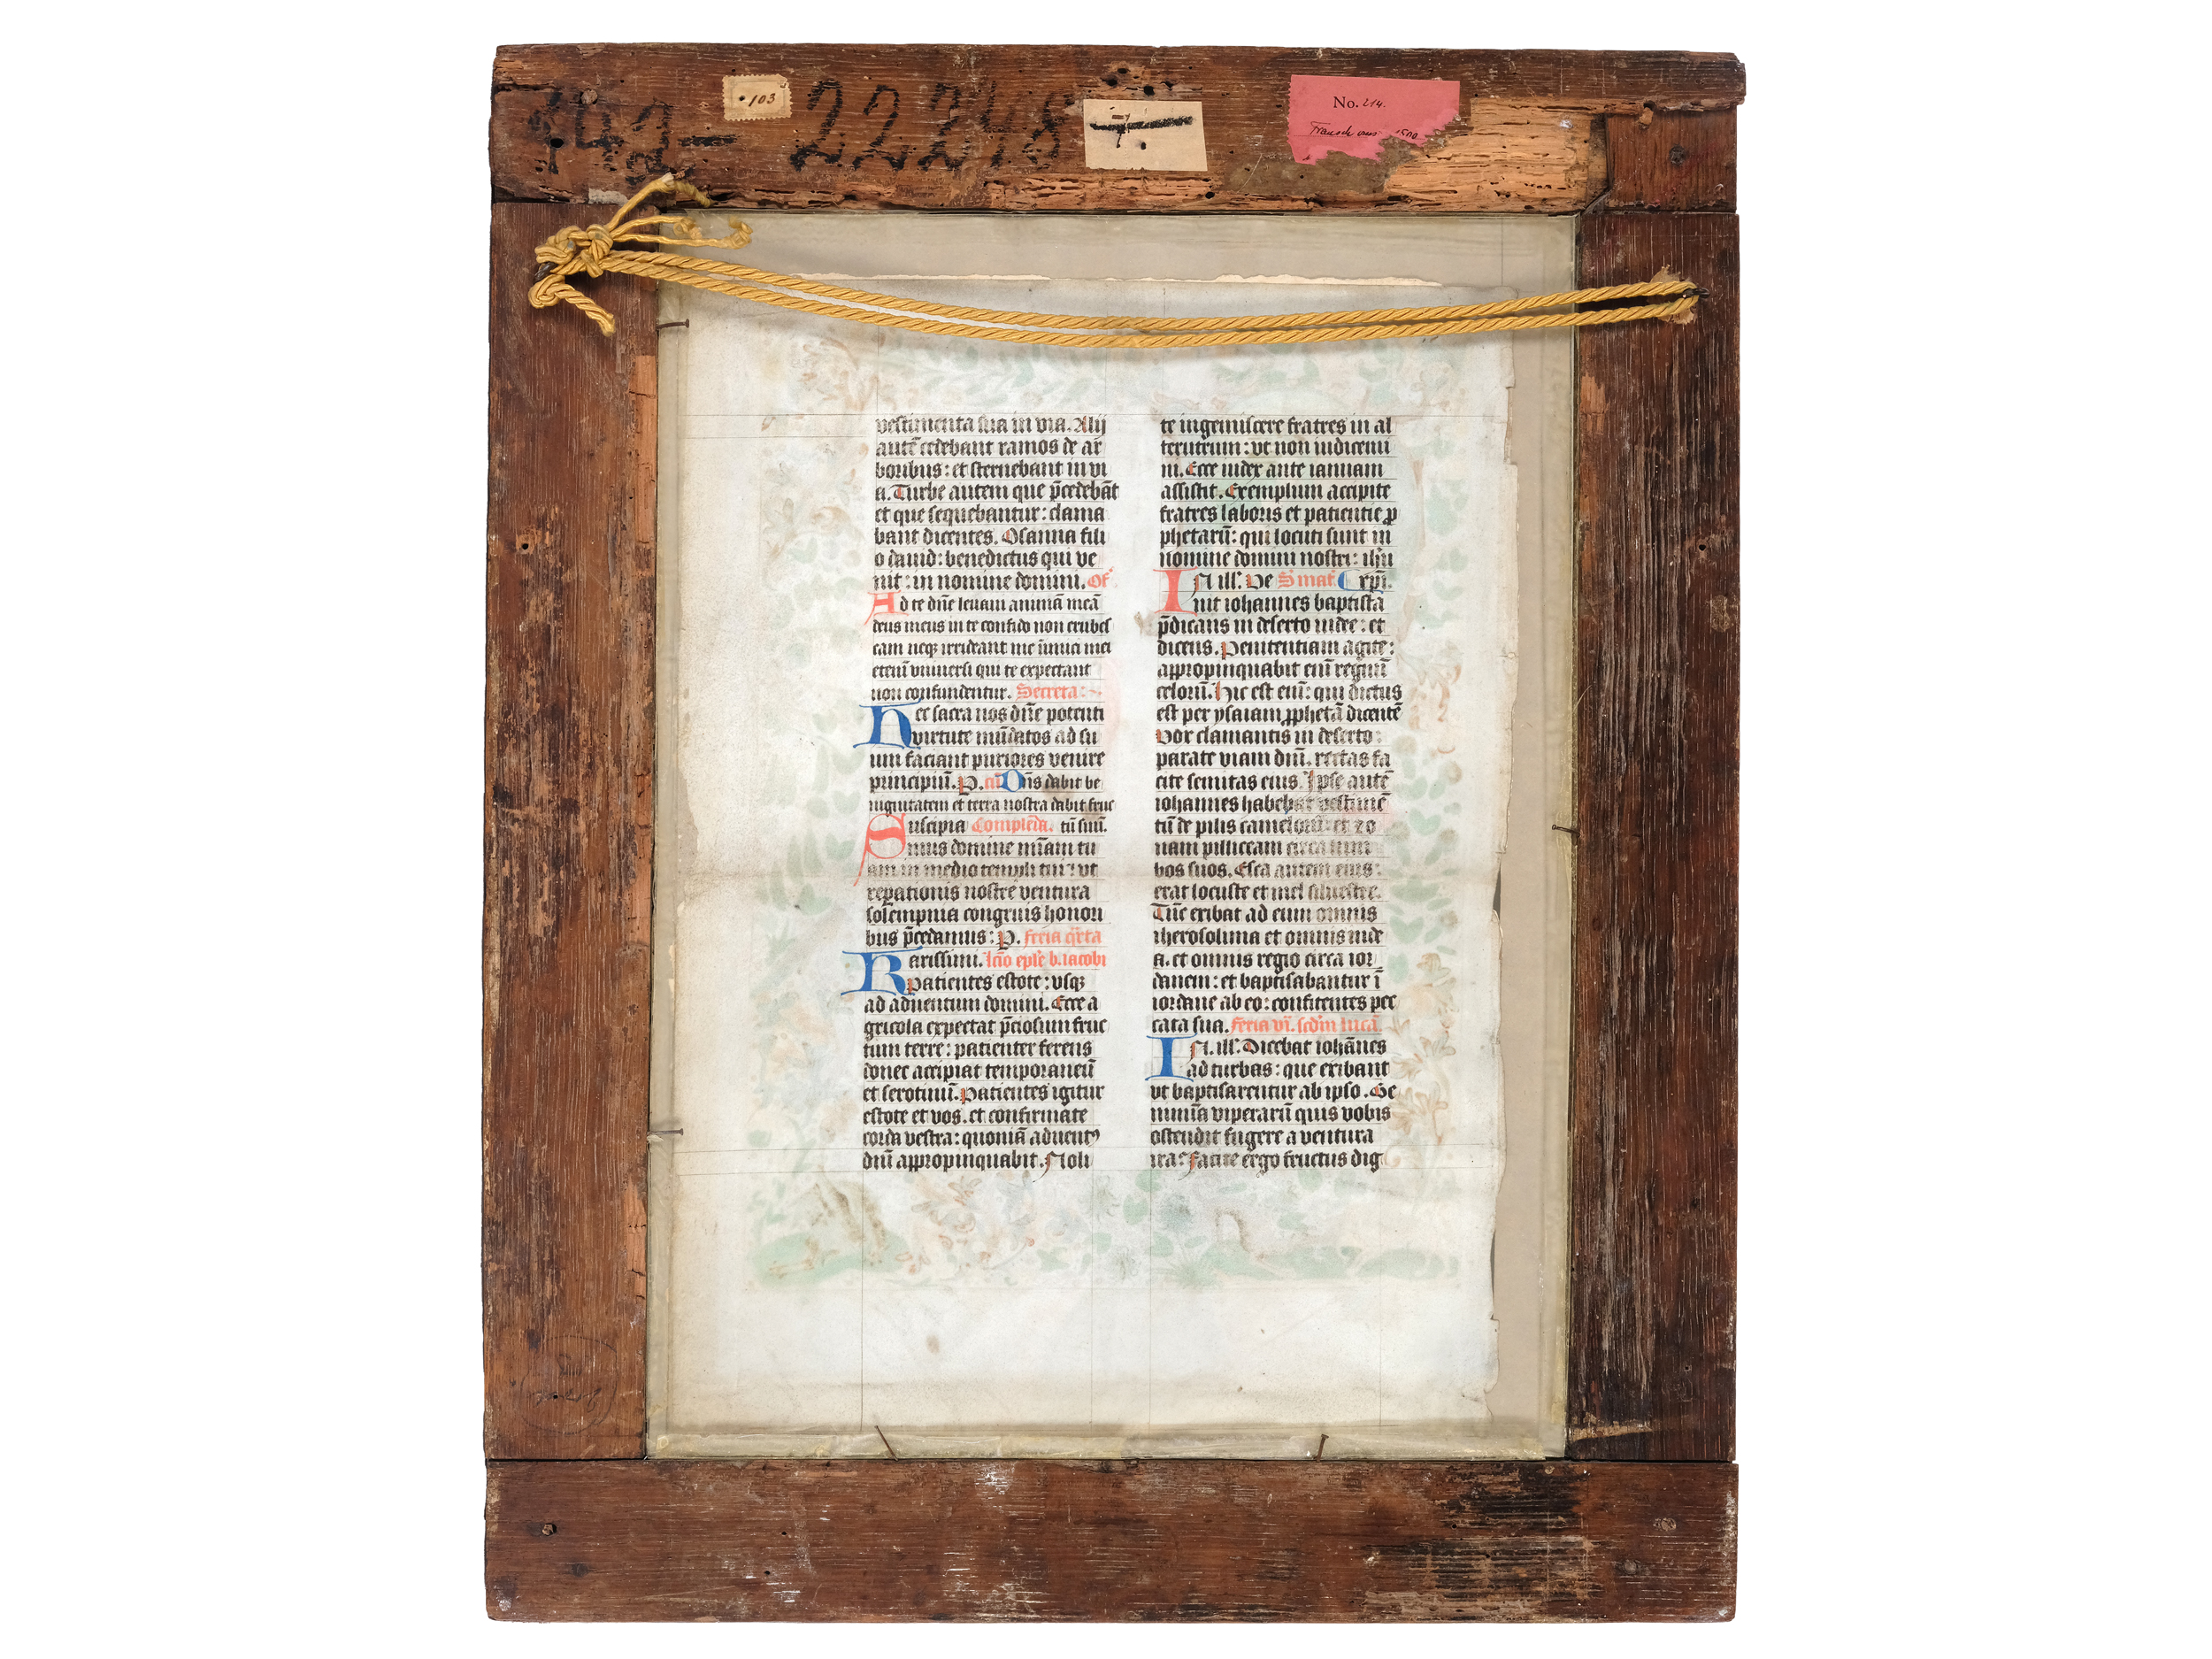 103
22298
7.
No. 214.
vestimenta sua in via. Alij
autē cedebant ramos de ar
boribus: et sternebant in vi
a. Turbe autem que p̄cedebāt
et que sequebantur: clama
bant dicentes. Osanna fili
o dauid: benedictus qui ve
nit: in nomine domini. Of̄
Ad te dn̄e leuaui animā meā
deus meus in te confido non erubes
cam neqꝫ irrideant me inimici mei
etenī vniuersi qui te expectant
non confundentur. Secreta:
Hec sacra nos dn̄e potenti
virtute mūdatos ad su
um faciant puriores venire
principiū. P. cū Dn̄s dabit be
nignitatem et terra nostra dabit fruc
Suscipia Complēda. tū suū.
mus domine m̄iam tu
am in medio templi tui: vt
reparationis nostre ventura
solempnia congruis honori
bus p̄cedamus: P. feria q̄rta
Karissimi. lc̄io eple b. iacobi
Patientes estote: vsqꝫ
ad aduentum domini. Ecce a
gricola expectat p̄ciosum fruc
tum terre: patienter ferens
donec accipiat temporaneū
et serotinū. Patientes igitur
estote et vos. et confirmate
corda vestra: quoniā aduentꝰ
dn̄i appropinquabit. Noli
te ingemiscere fratres in al
terutrum: vt non iudicemi
ni. Ecce iudex ante ianuam
assistit. Exemplum accipite
fratres laboris et patientie ꝓ
phetarū: qui locuti sunt in
nomine domini nostri: ih̄u
IN ill'. Ve S mat'. C xp̄i.
nit iohannes baptista
p̄dicans in deserto iudee: et
dicens. Penitentiam agite:
appropinquabit enī regnū
celorū. Hic est enī: qui dictus
est per ysaiam ꝓphetā dicentē
Vox clamantis in deserto:
parate viam dn̄i. rectas fa
cite semitas eius. Ipse autē
iohannes habebat vestimē
tū de pilis camelorū: et zo
nam pilliceam circa lum
bos suos. Esca autem eius:
erat locuste et mel siluestre.
Tūc exibat ad eum omnis
iherosolima et omnis iude
a. et omnis regio circa ior
danem: et baptisabantur ī
iordane ab eo: confitentes pec
cata sua. feria vi. scd̄m lucā.
IN. ill'. Dicebat iohānes
ad turbas: que exibant
vt baptisarentur ab ipso. Ge
nimīa viperarū quis vobis
ostendit fugere a ventura
ira: facite ergo fructus dig